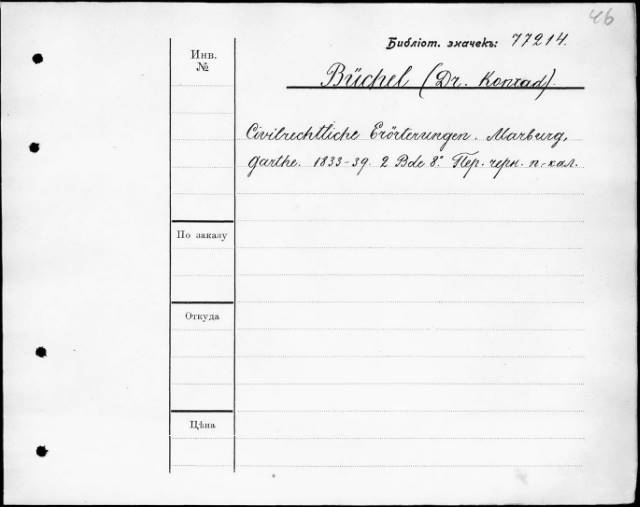 46
Библіот. значекъ: 77214.
Инв.
№
Büchel (Dr. Konrad).
Civilrechtliche Erörterungen. Marburg,
Garthe. 1833-39. 2 Bde 8º. Пер. черн. п.-кал.
По заказу
Откуда
Цѣна